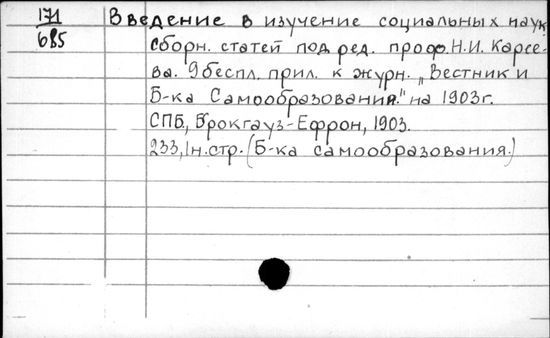 171
685
Введение в изучение социальных наук
сборн. статей под ред. проф. Н.И. Карее-
ва. 9 беспл. прил. к журн. „Вестник и
Б-ка Самообразования." на 1903 г.
СПБ., Брокгауз-Ефрон, 1903.
233, 1 н.стр. (Б-ка самообразования.)